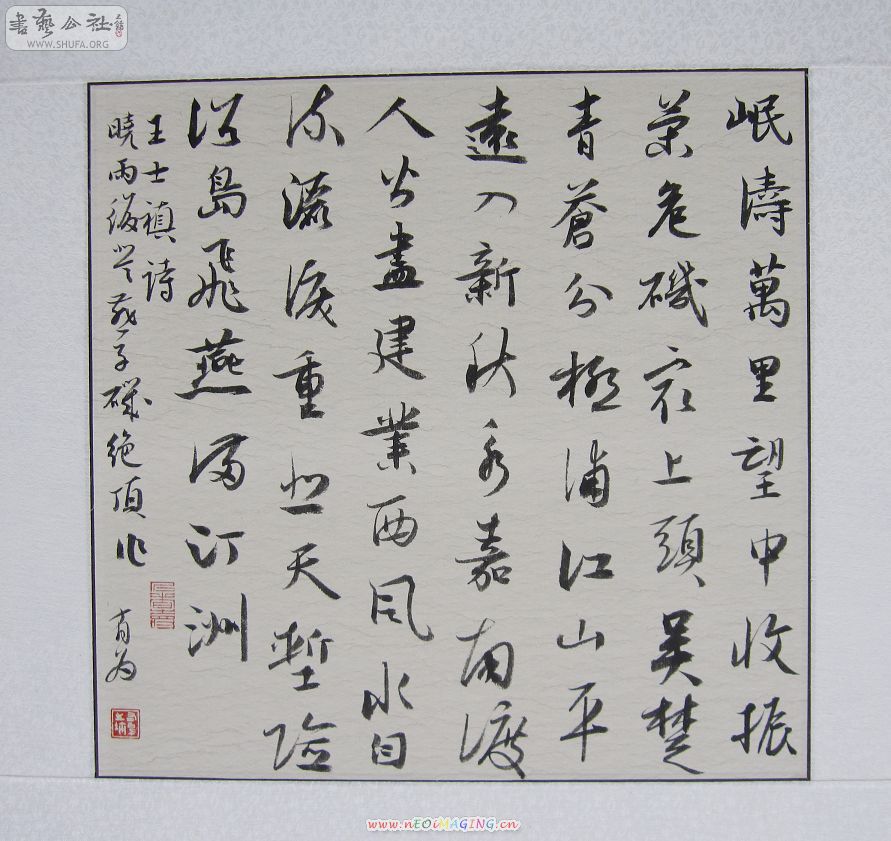 岷濤萬里望中收振
策危磯最上頭吳楚
青蒼分極浦江山平
遠入新秋永嘉南渡
人皆盡建業西風水自
流灑淚重悲天塹險
浴島飛燕滿汀洲
王士禛詩
曉雨復登燕子磯絕頂作 肖为
書藝公社
WWW.SHUFA.ORG
www.nEOiMAGING.cn